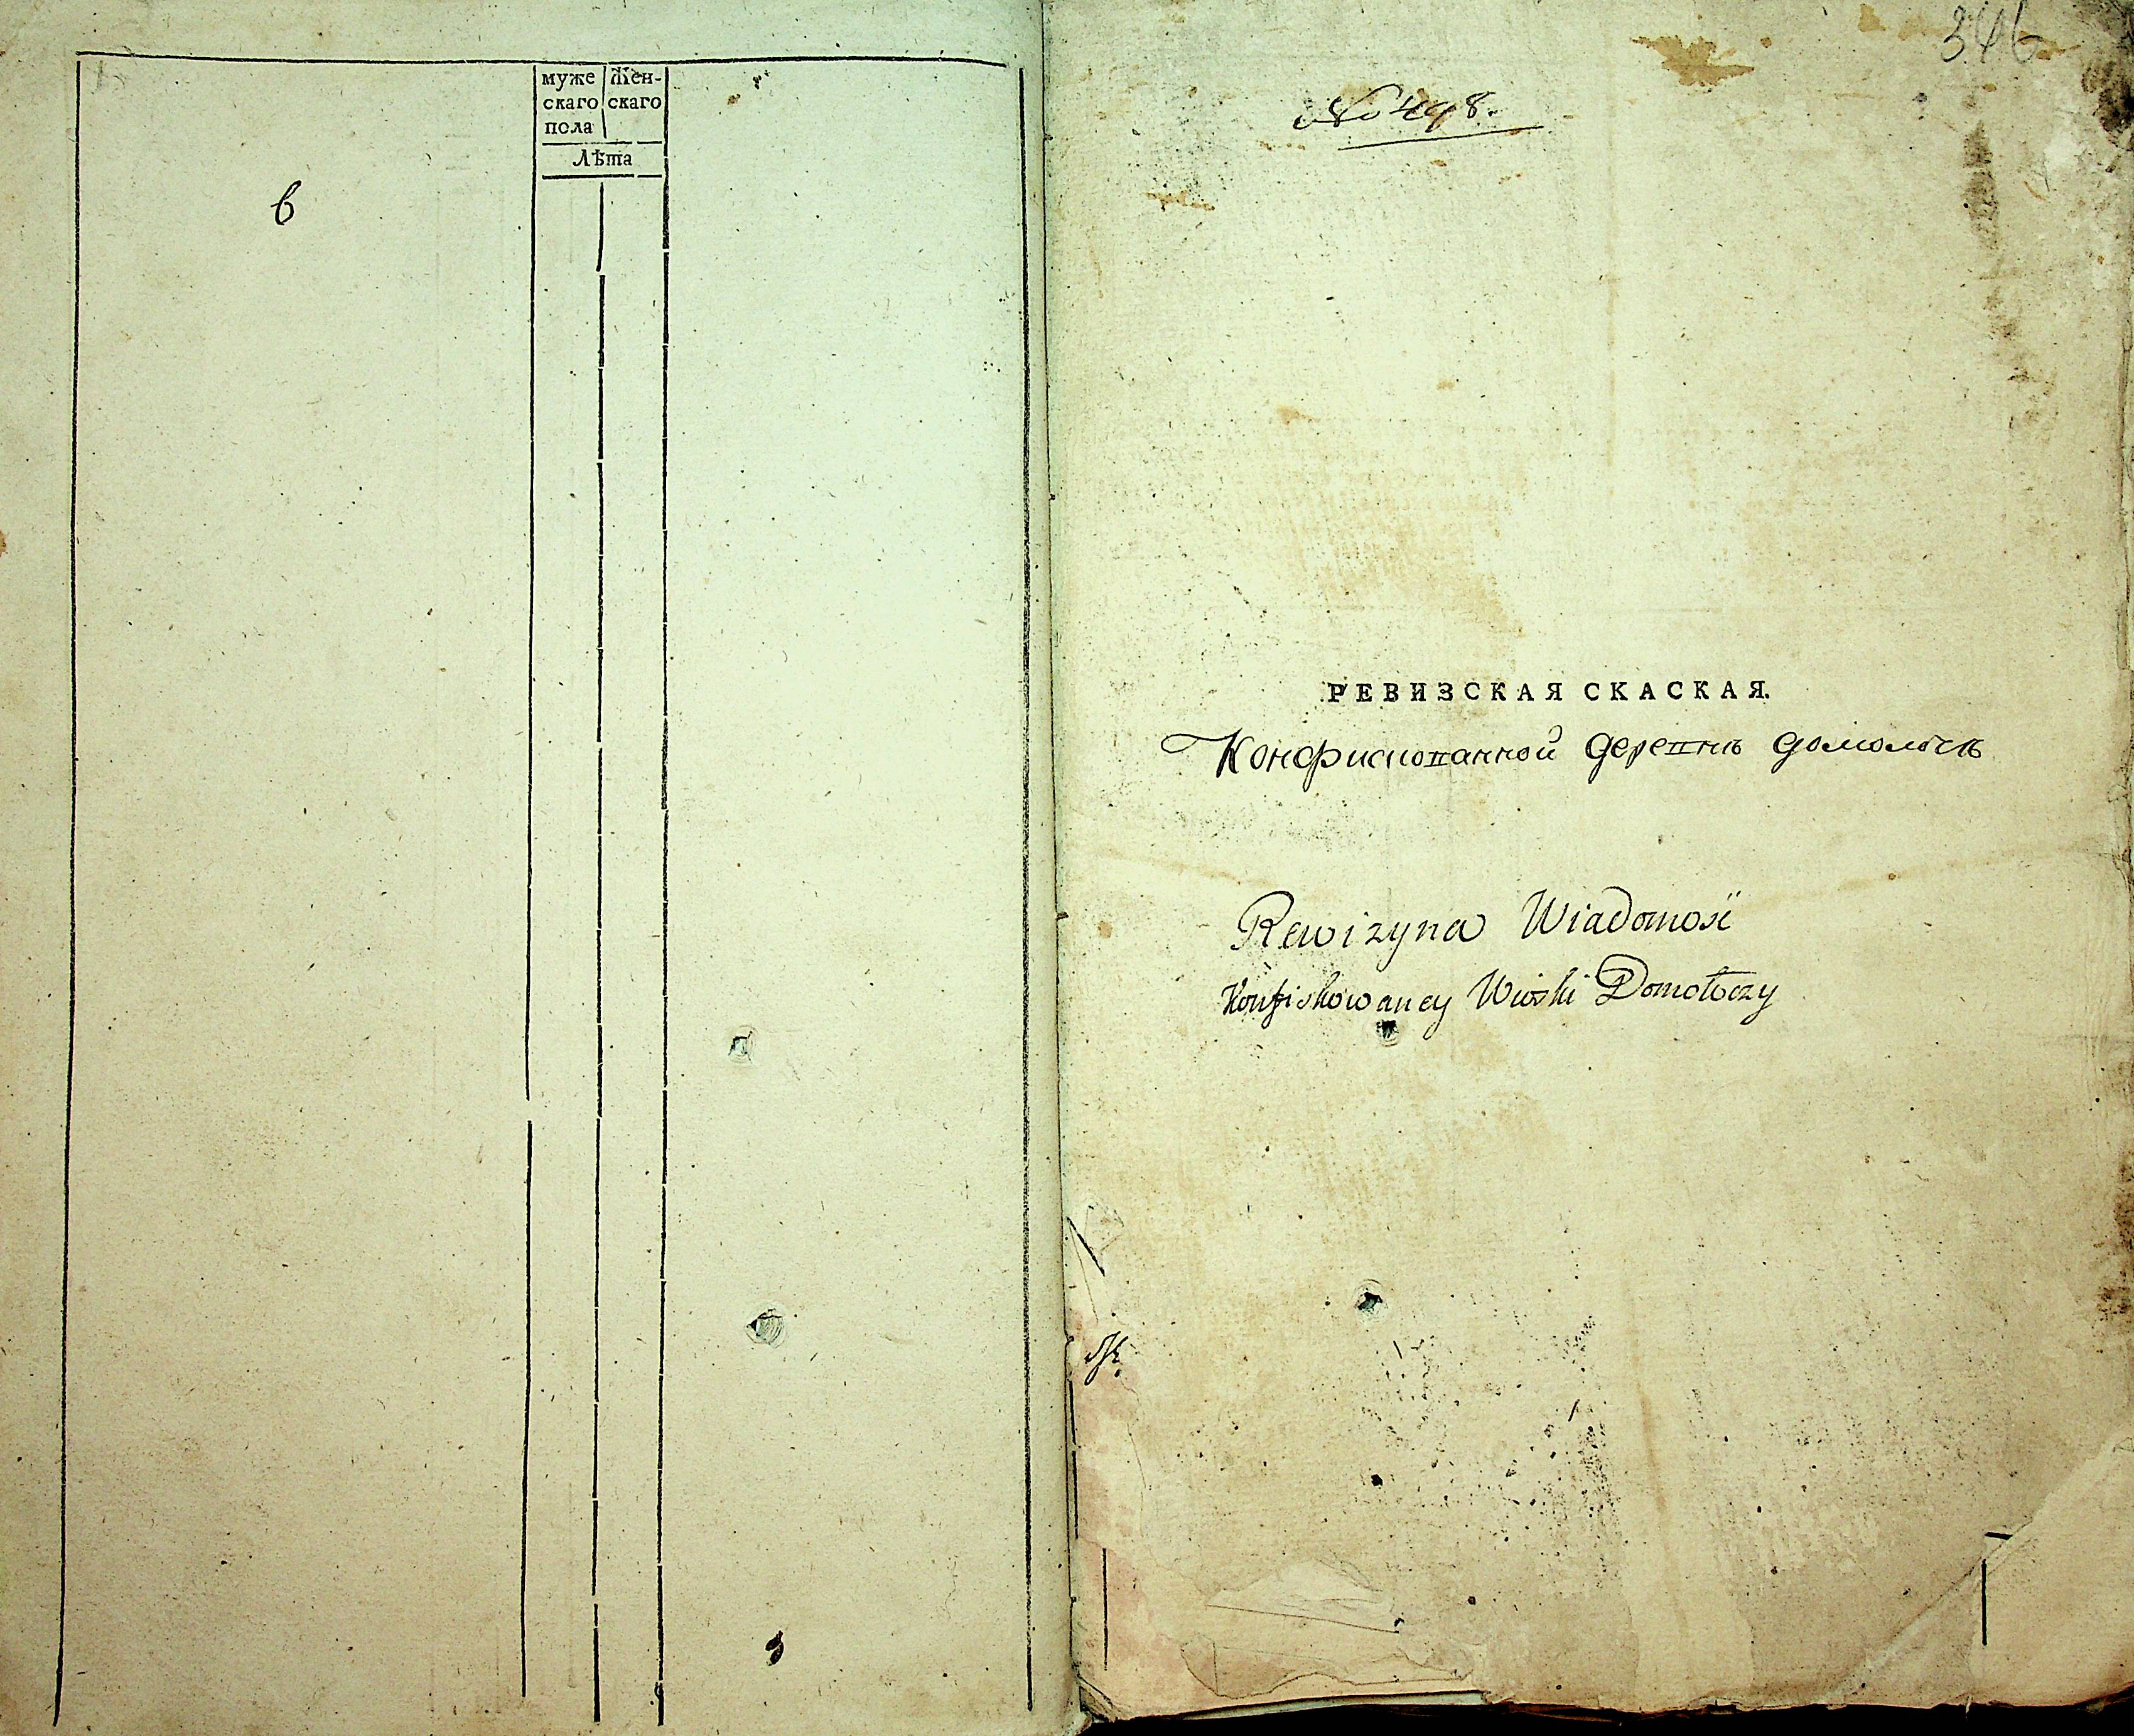 муже Жен-
скаго скаго
пола
Лѣта
6
346
№ 498.
РЕВИЗСКАЯ СКАСКАЯ.
Конфискованной деревнѣ
Rewizyna Wiadomość
Konfiskowaney Wioski Domotoczy